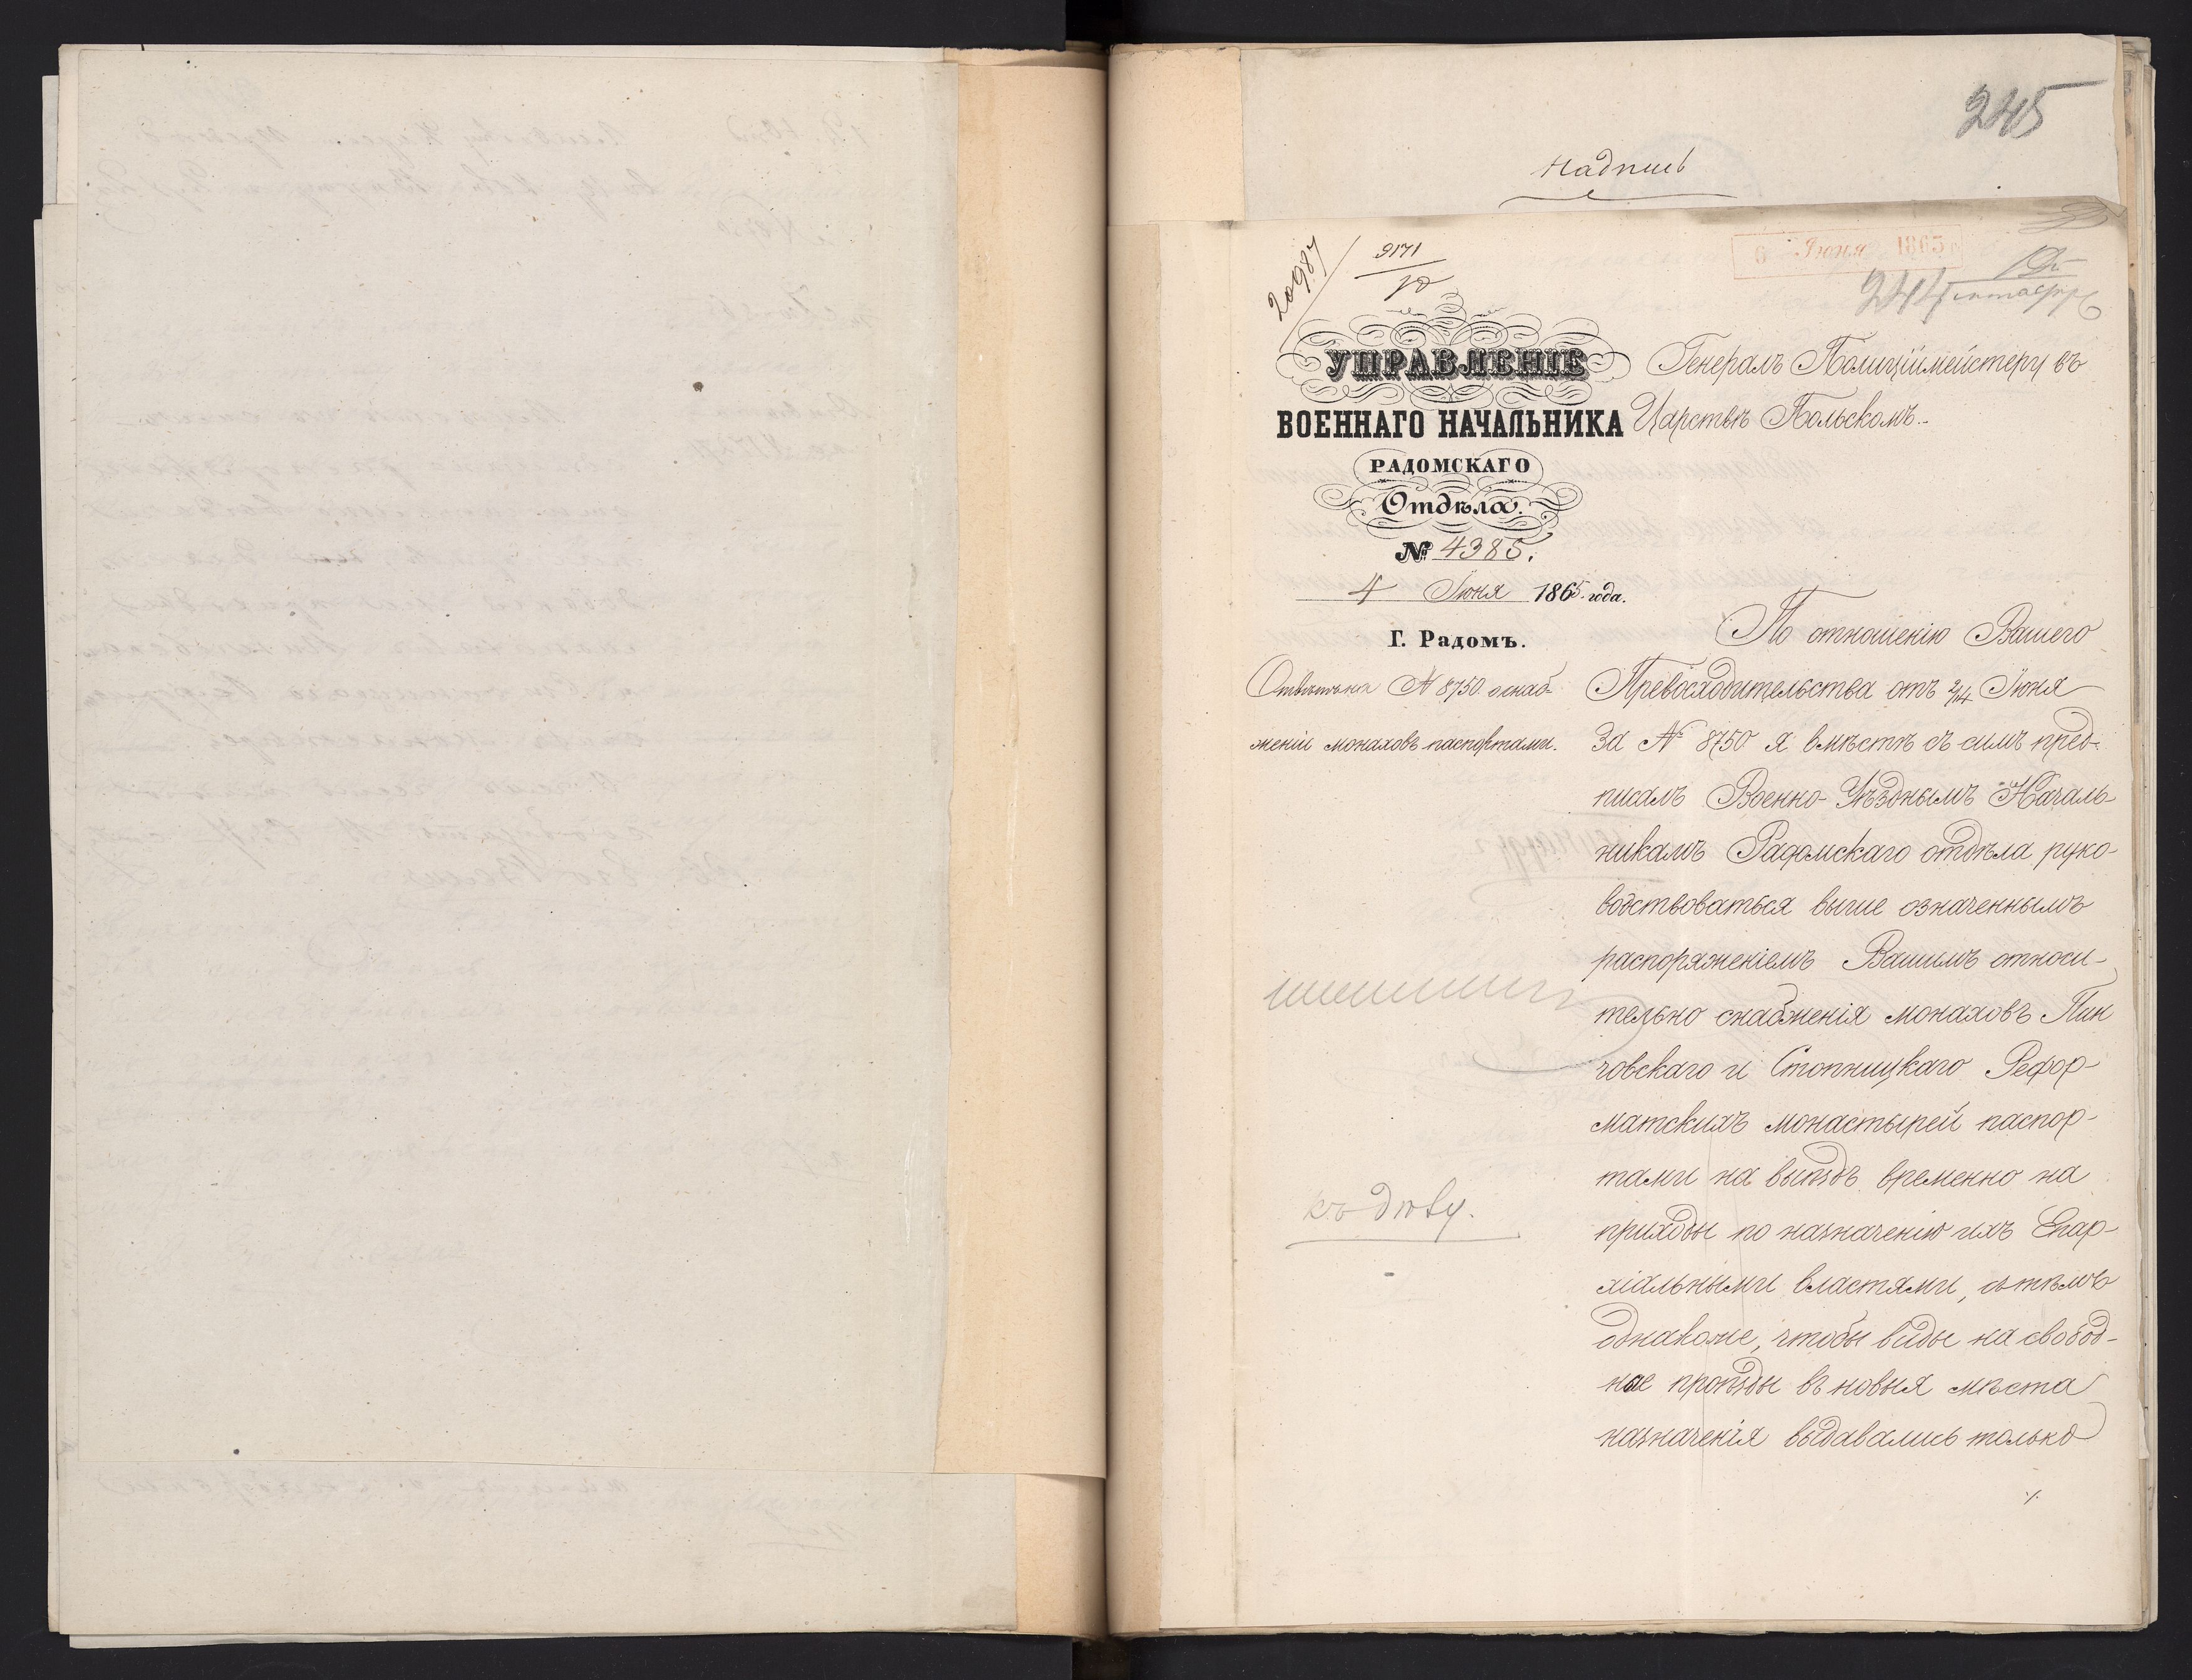 245
Надпись
20987
9171
6 Іюня 1865
244
УПРАВЛЕНІЕ
ВОЕННАГО НАЧАЛЬНИКА
РАДОМСКАГО
Отдѣла.
№ 4385.
4 Іюня 1865 года.
Г. Радомъ.
Отвѣтъ на № 8750 о снаб-
женіи монаховъ паспортами.
къ дѣлу.
Генералъ Полиціймейстеру въ
Царствѣ Польскомъ.
По отношенію Вашего
Превосходительства отъ 2/14 Іюня
за № 8750 я вмѣстѣ съ симъ пред-
писалъ Военно-Уѣзднымъ Началь-
никамъ Радомскаго отдѣла руко-
водствоваться выше означеннымъ
распоряженіемъ Вашимъ относи-
тельно снабженія монаховъ Пин
човскаго и Стопницкаго Рефор-
матскихъ монастырей паспор-
тами на выѣздъ временно на
приходы по назначенію ихъ Епар-
хіальными властями, съ тѣмъ
однакоже, чтобы виды на свобод-
ные проѣзды въ новыя мѣста
назначенія выдавались только
./.